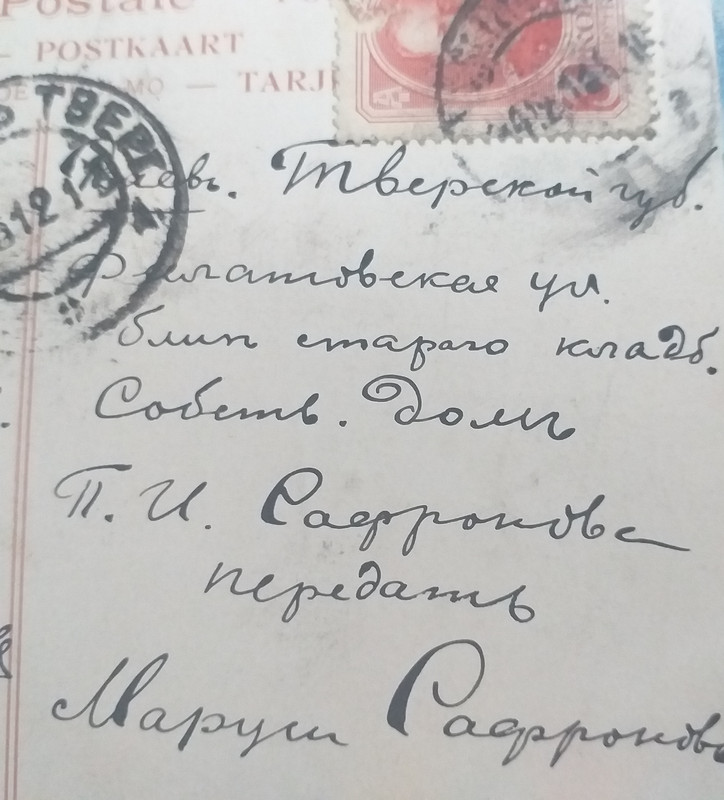 Postale
— POSTKAART
— TARJ
ТВЕР
Тверской губ.
Филатовская ул.
близ стараго кладб.
Собств. домъ
П. И. Сафронова
передать
Маруси Сафронов